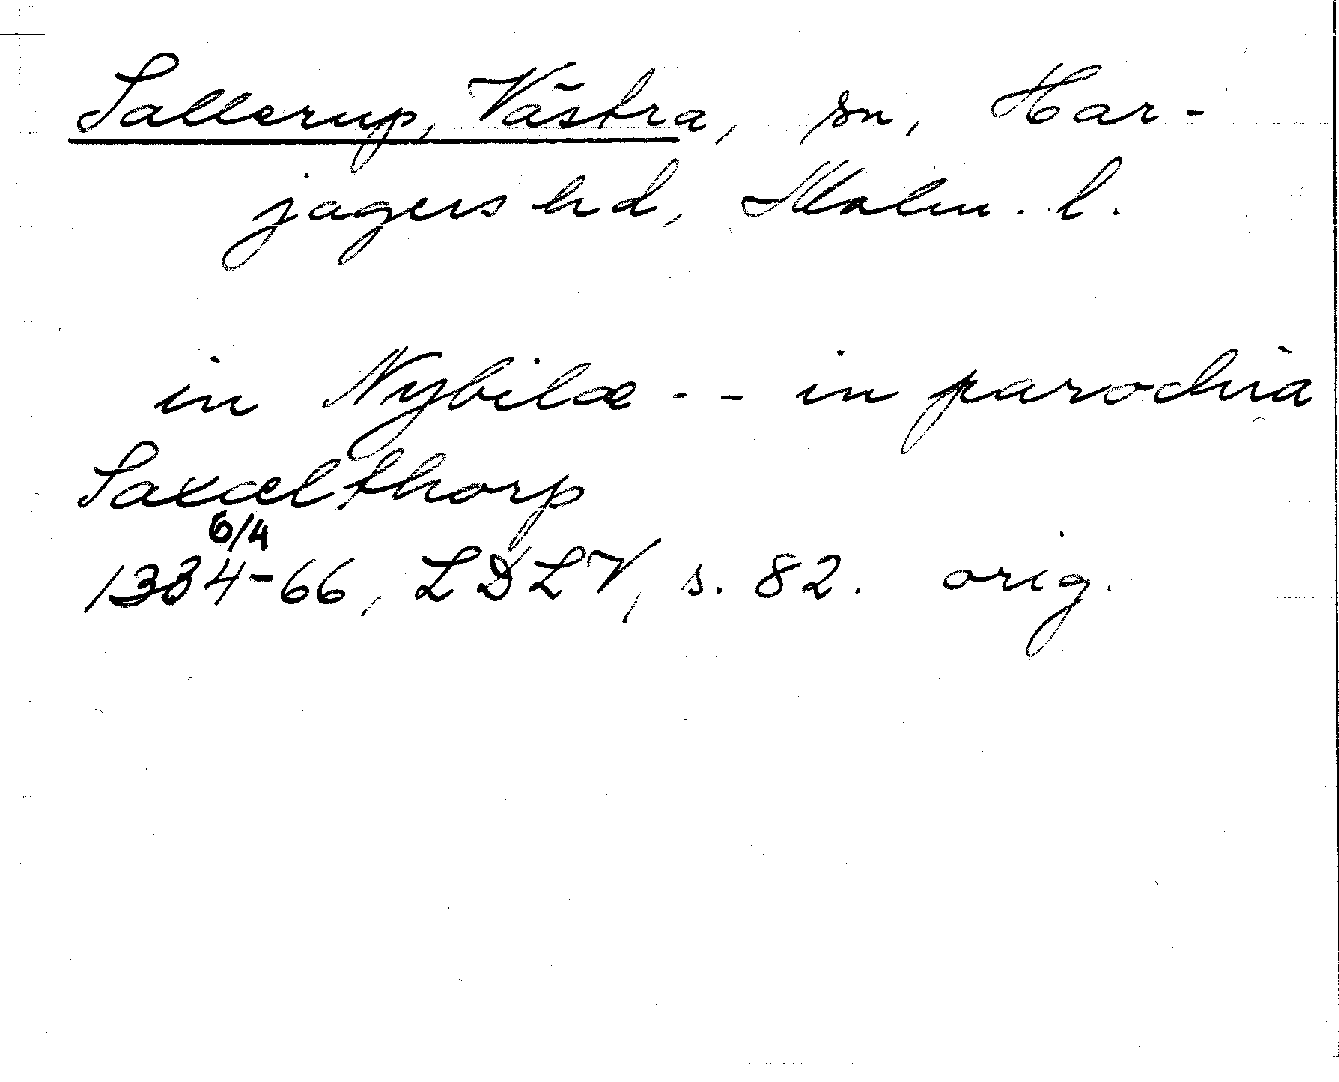 Sallerup, Västra, sn, Har-
jagers hd, Malm. l.
in Nybilæ -- in parochia
Saxælthorp
6/4
1334-66, LDLV, s. 82. orig.